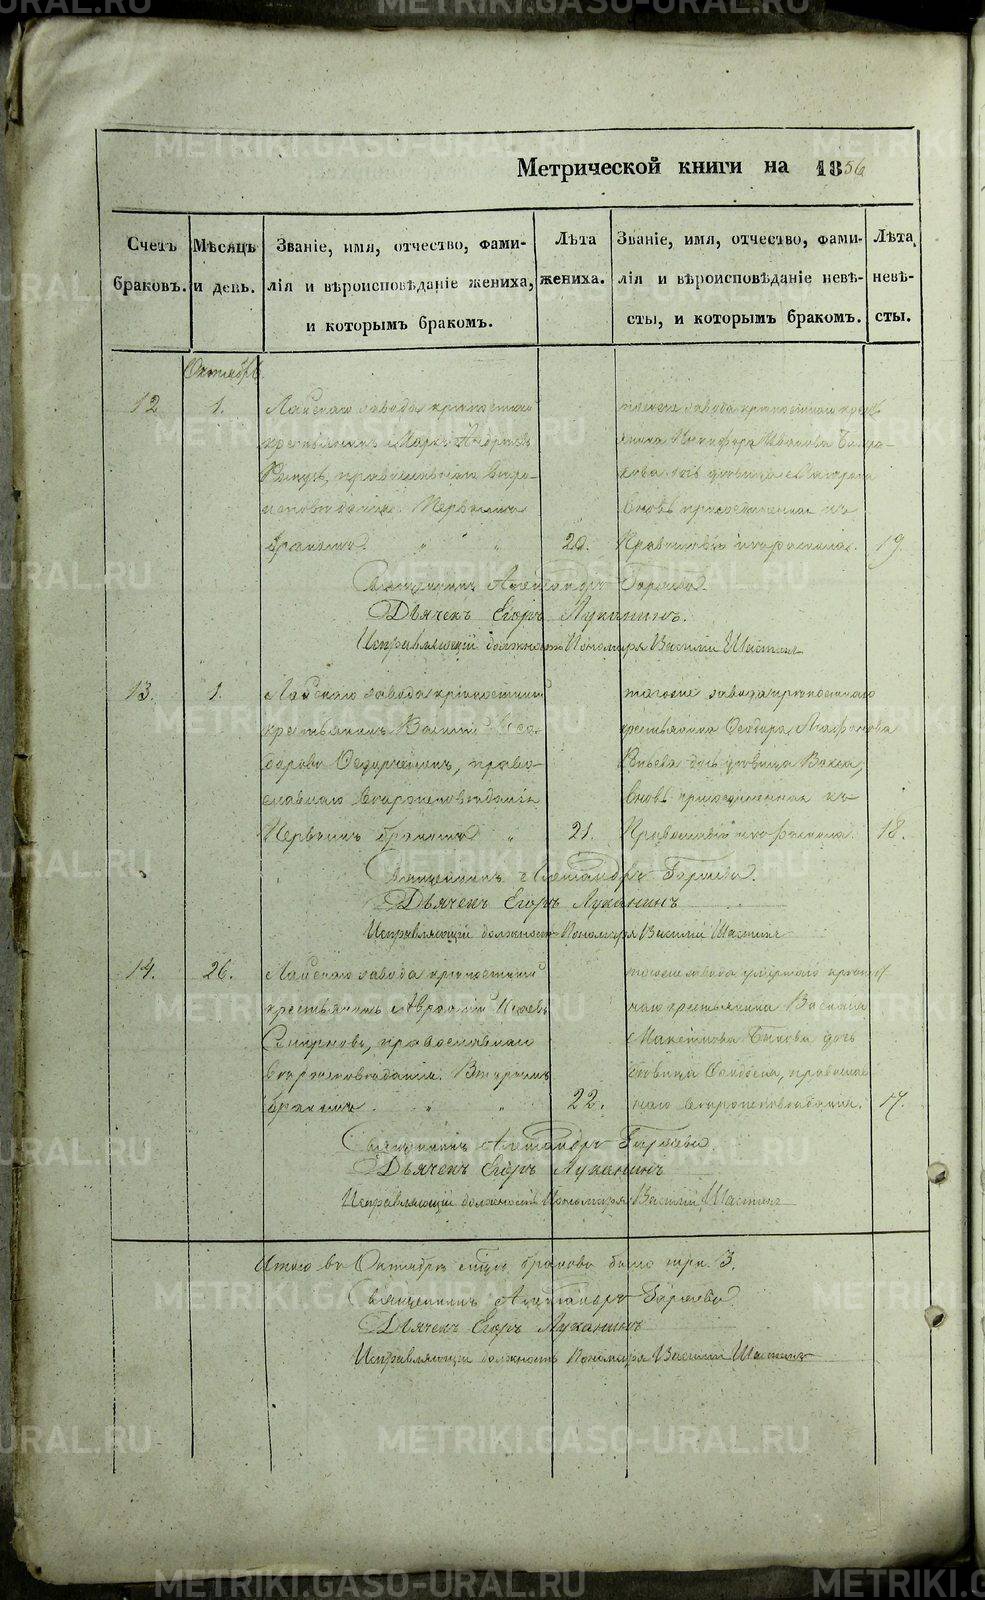 Метрической книги на 1856
Счетъ браковъ.
Мѣсяцъ и день.
Званіе, имя, отчество, фами-
лія и вѣроисповѣданіе жениха,
и которымъ бракомъ.
Лѣта
жениха.
Званіе, имя, отчество, фами-
лія и вѣроисповѣданіе невѣ-
сты, и которымъ бракомъ.
Лѣта
невѣ-
сты.
Октябрь
12
1.
Лайскаго завода крѣпостный
крестьянинъ Маркъ Андреевъ
православнаго вѣро-
исповѣданія. Первымъ
бракомъ.
20.
завода крѣпостнаго крест
янина Никифора Иванова
дѣвица
вновь присоединенная къ
Православію первымъ
19.
Священникъ Александръ
Дьячекъ Егоръ Луканинъ.
Исправляющій должность Пономаря Василій Шастинъ
13.
1.
Лайскаго завода крѣпостный
крестьянинъ Василій Ѳео-
доровъ православ-
славнаго вѣроисповѣданія
Первымъ бракомъ
21.
тогоже завода крѣпостнаго
крестьянина Ѳеодора Агафонова
дочь дѣвица Васса,
вновь присоединенная къ
Православію
18.
Священникъ Александръ
Дьячекъ Егоръ Луканинъ
Исправляющій должность Пономаря Василій Шастинъ
14.
26.
Лайскаго завода крѣпостный
крестьянинъ Авраамій Исаевъ
Смирновъ, православнаго
вѣроисповѣданія. Вторымъ
бракомъ.
22.
тогоже завода умершаго крѣпост
наго крестьянина Василія
Максимова Быкова дочь
дѣвица православ
наго вѣроисповѣданія.
17.
Священникъ Александръ
Дьячекъ Егоръ Луканинъ
Исправляющій должность Пономаря Василій Шастинъ
Итого въ Октябрѣ браковъ было три. 3.
Священникъ Александръ
Дьячекъ Егоръ Луканинъ
Исправляющій должность Пономаря Василій Шастинъ
METRIKI.GASO-URAL.RU